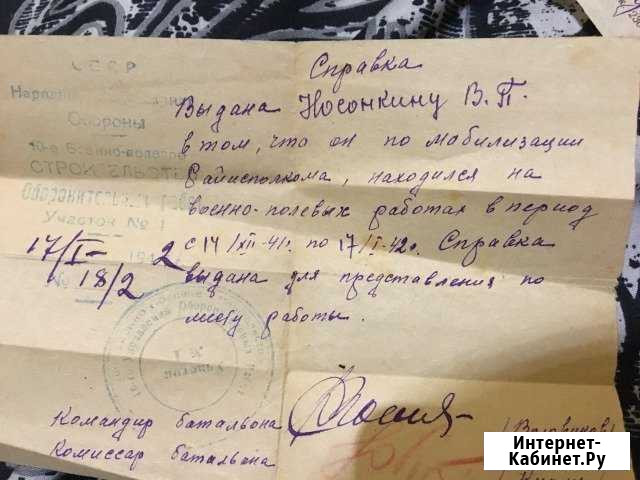 СССР
Оборонь
10-е Военно-полевое
СТРОИТЕЛЬСТВО
Участок № 1
17/I- 194 2
№ 18/2
Справка
Выдана Носонкину В.П.
в том, что он по мобилизации
Райисполкома, находился на
военно-полевых работах в период
с 14/XII-41г. по 17/I-42г. Справка
выдана для представления по
месту работы.
Участок
№ 1
Командир батальона
Комиссар батальона
Интернет-
Кабинет.Ру